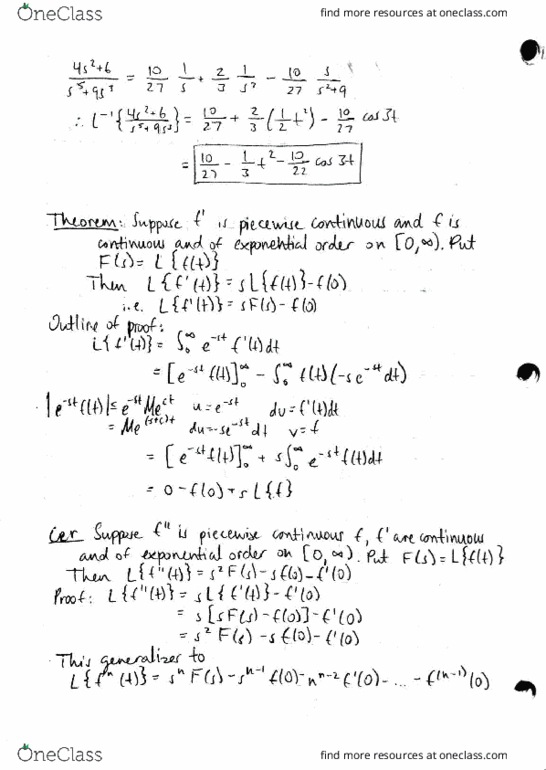 OneClass find more resources at oneclass.com
(4s²+6)/(s⁵+9s³) = 10/27 1/s + 2/3 1/s³ - 10/27 s/(s²+9)
∴ L⁻¹{(4s²+6)/(s⁵+9s³)} = 10/27 + 2/3 (1/2 t²) - 10/27 cos 3t
= 10/27 - 1/3 t² - 10/22 cos 3t
Theorem: Suppose f' is piecewise continuous and f is
continuous and of exponential order on [0,∞). Put
F(s) = L{f(t)}
Then L{f'(t)} = sL{f(t)} - f(0)
i.e. L{f'(t)} = sF(s) - f(0)
Outline of proof:
L{f'(t)} = ∫₀^∞ e^(-st) f'(t)dt
= [e^(-st) f(t)]₀^∞ - ∫₀^∞ f(t)(-se^(-st)dt)
|e^(-st)f(t)| ≤ e^(-st)Me^(ct) u = e^(-st) dv = f'(t)dt
= Me^((s+c)t) du = -se^(-st)dt v = f
= [e^(-st)f(t)]₀^∞ + s∫₀^∞ e^(-st)f(t)dt
= 0 - f(0) + sL{f}
Cor Suppose f'' is piecewise continuous f, f' are continuous
and of exponential order on [0,∞). Put F(s) = L{f(t)}
Then L{f''(t)} = s²F(s) - sf(0) - f'(0)
Proof: L{f''(t)} = sL{f'(t)} - f'(0)
= s[sF(s) - f(0)] - f'(0)
= s²F(s) - sf(0) - f'(0)
This generalizes to
L{fⁿ(t)} = sⁿF(s) - sⁿ⁻¹f(0) - nⁿ⁻²f'(0) - ... - f⁽ⁿ⁻¹⁾(0)
OneClass find more resources at oneclass.com